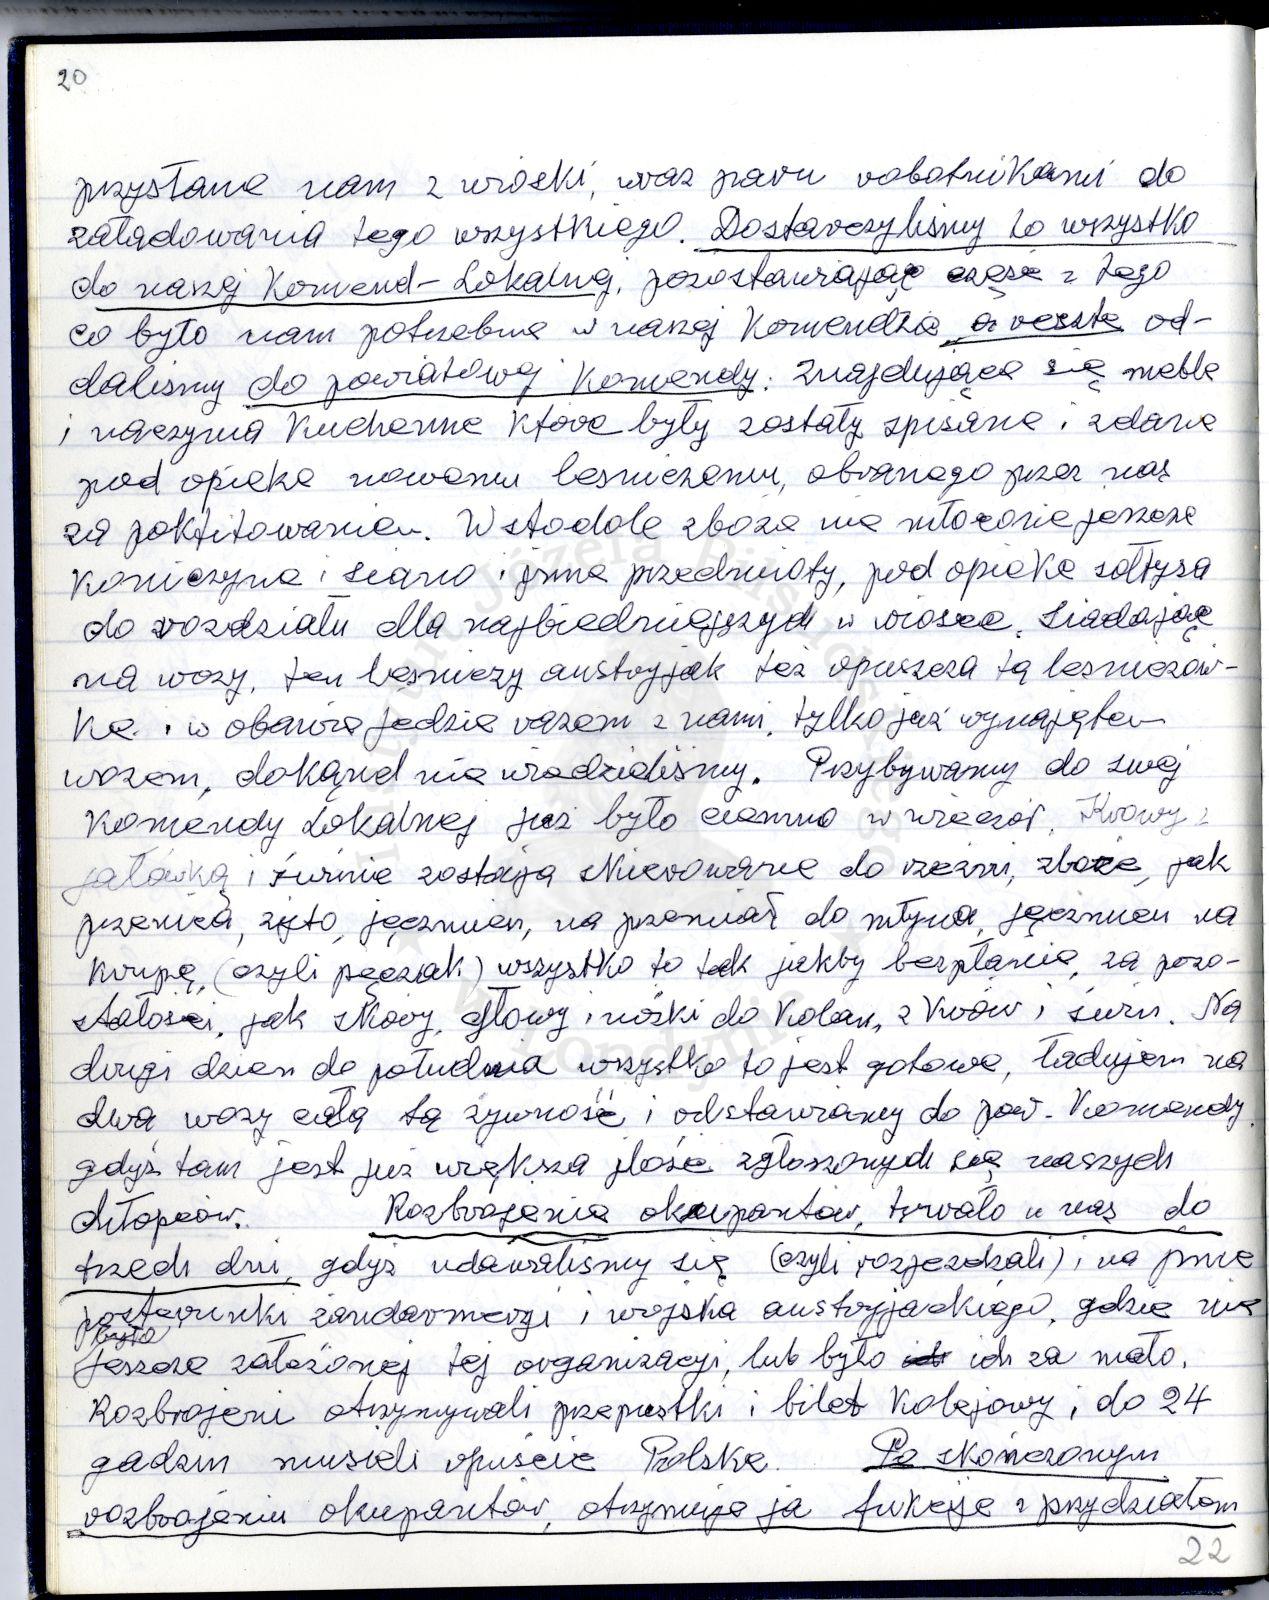 20
przysłane nam z wioski, wraz paru robotnikami do
załadowania tego wszystkiego. Dostarczyliśmy to wszystko
do naszej Komend-Lokalnej, pozostawiając część z tego
co było nam potrzebne w naszej Komendzie a resztę od-
daliśmy do powiatowej Komendy. Znajdujące się meble
i naczynia Kuchenne które były zostały spisane i zdane
pod opiekę nowemu lesniczemu, obranego przez nas
za pokfitowaniem. W stodole zboże nie młocone jeszcze
Koniczyne i siano i inne przedmioty, pod opiekę sołtysa
do rozdziału dla najbiedniejszych w wiosce. Siadając
na wozy, ten lesniczy austryjak też opuszcza tą lesniczów-
kę i w obawie jedzie razem z nami, tylko już wynajętem
wozem, dokąd nie wiedzieliśmy. Przybywamy do swej
Komendy Lokalnej już było ciemno wieczór. Krowy z
jałówką i świnie zostają skierowane do rzeźni, zboże, jak
pszenica, żyto, jęczmien, na przemiał do młyna, jęczmien na
krupę, (czyli pęczak) wszystko to tak jakby bezpłatnie, za pozo-
stałości, jak skóry, głowy i nóżki do kolan, z krów i świn. Na
drugi dzien do południa wszystko to jest gotowe, ładujem na
dwa wozy całą tą żywność i odstawiamy do pow. Komendy
gdyż tam jest już większa ilość zgłoszonych się naszych
chłopców. Rozbrojenie okupantów, trwało u nas do
trzech dni, gdyż udawaliśmy się (czyli rozjeżdzali) i na inne
postęrunki żandarmerji i wojska austryjackiego, gdzie nie
było
jeszcze założonej tej organizacyi, lub było ich za mało.
Rozbrojeni otrzymywali przepustki i bilet Kolejowy i do 24
godzin musieli opuście Polskę. Po skończonym
rozbrojeniu okupantów, otrzymuje ja fukcję z przydziałem
22
Instytut Józefa Piłsudskiego w Londynie